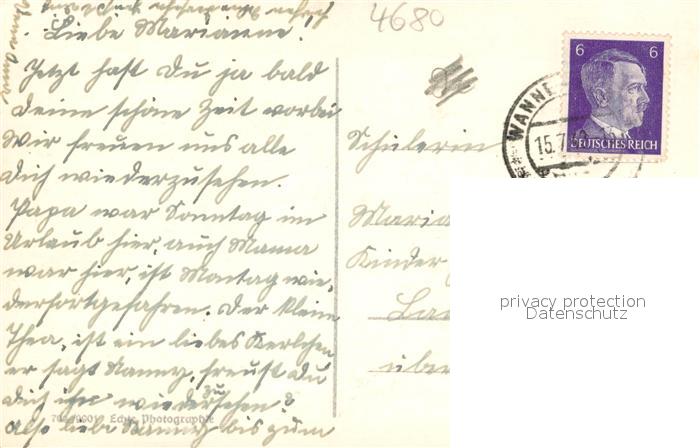 4680
Liebe Marianne!
Jetzt hast Du ja bald
Deine schöne Zeit vorbei
Wir freuen uns alle
Dich wiederzusehen.
Papa war Sonntag im
Urlaub hier, auch Mama
war hier, ist Montag wie-
derfortgefahren. Der kleine
Thea, ist ein liebes Kerlchen
er sagt Nanny, freust Du
Dich ihn wiederzusehen?
Also liebe Nanny bis zum
Echte Photographie
6 6
DEUTSCHES REICH
WANNE
15.7
Schülerin
Kinder
über
privacy protection
Datenschutz